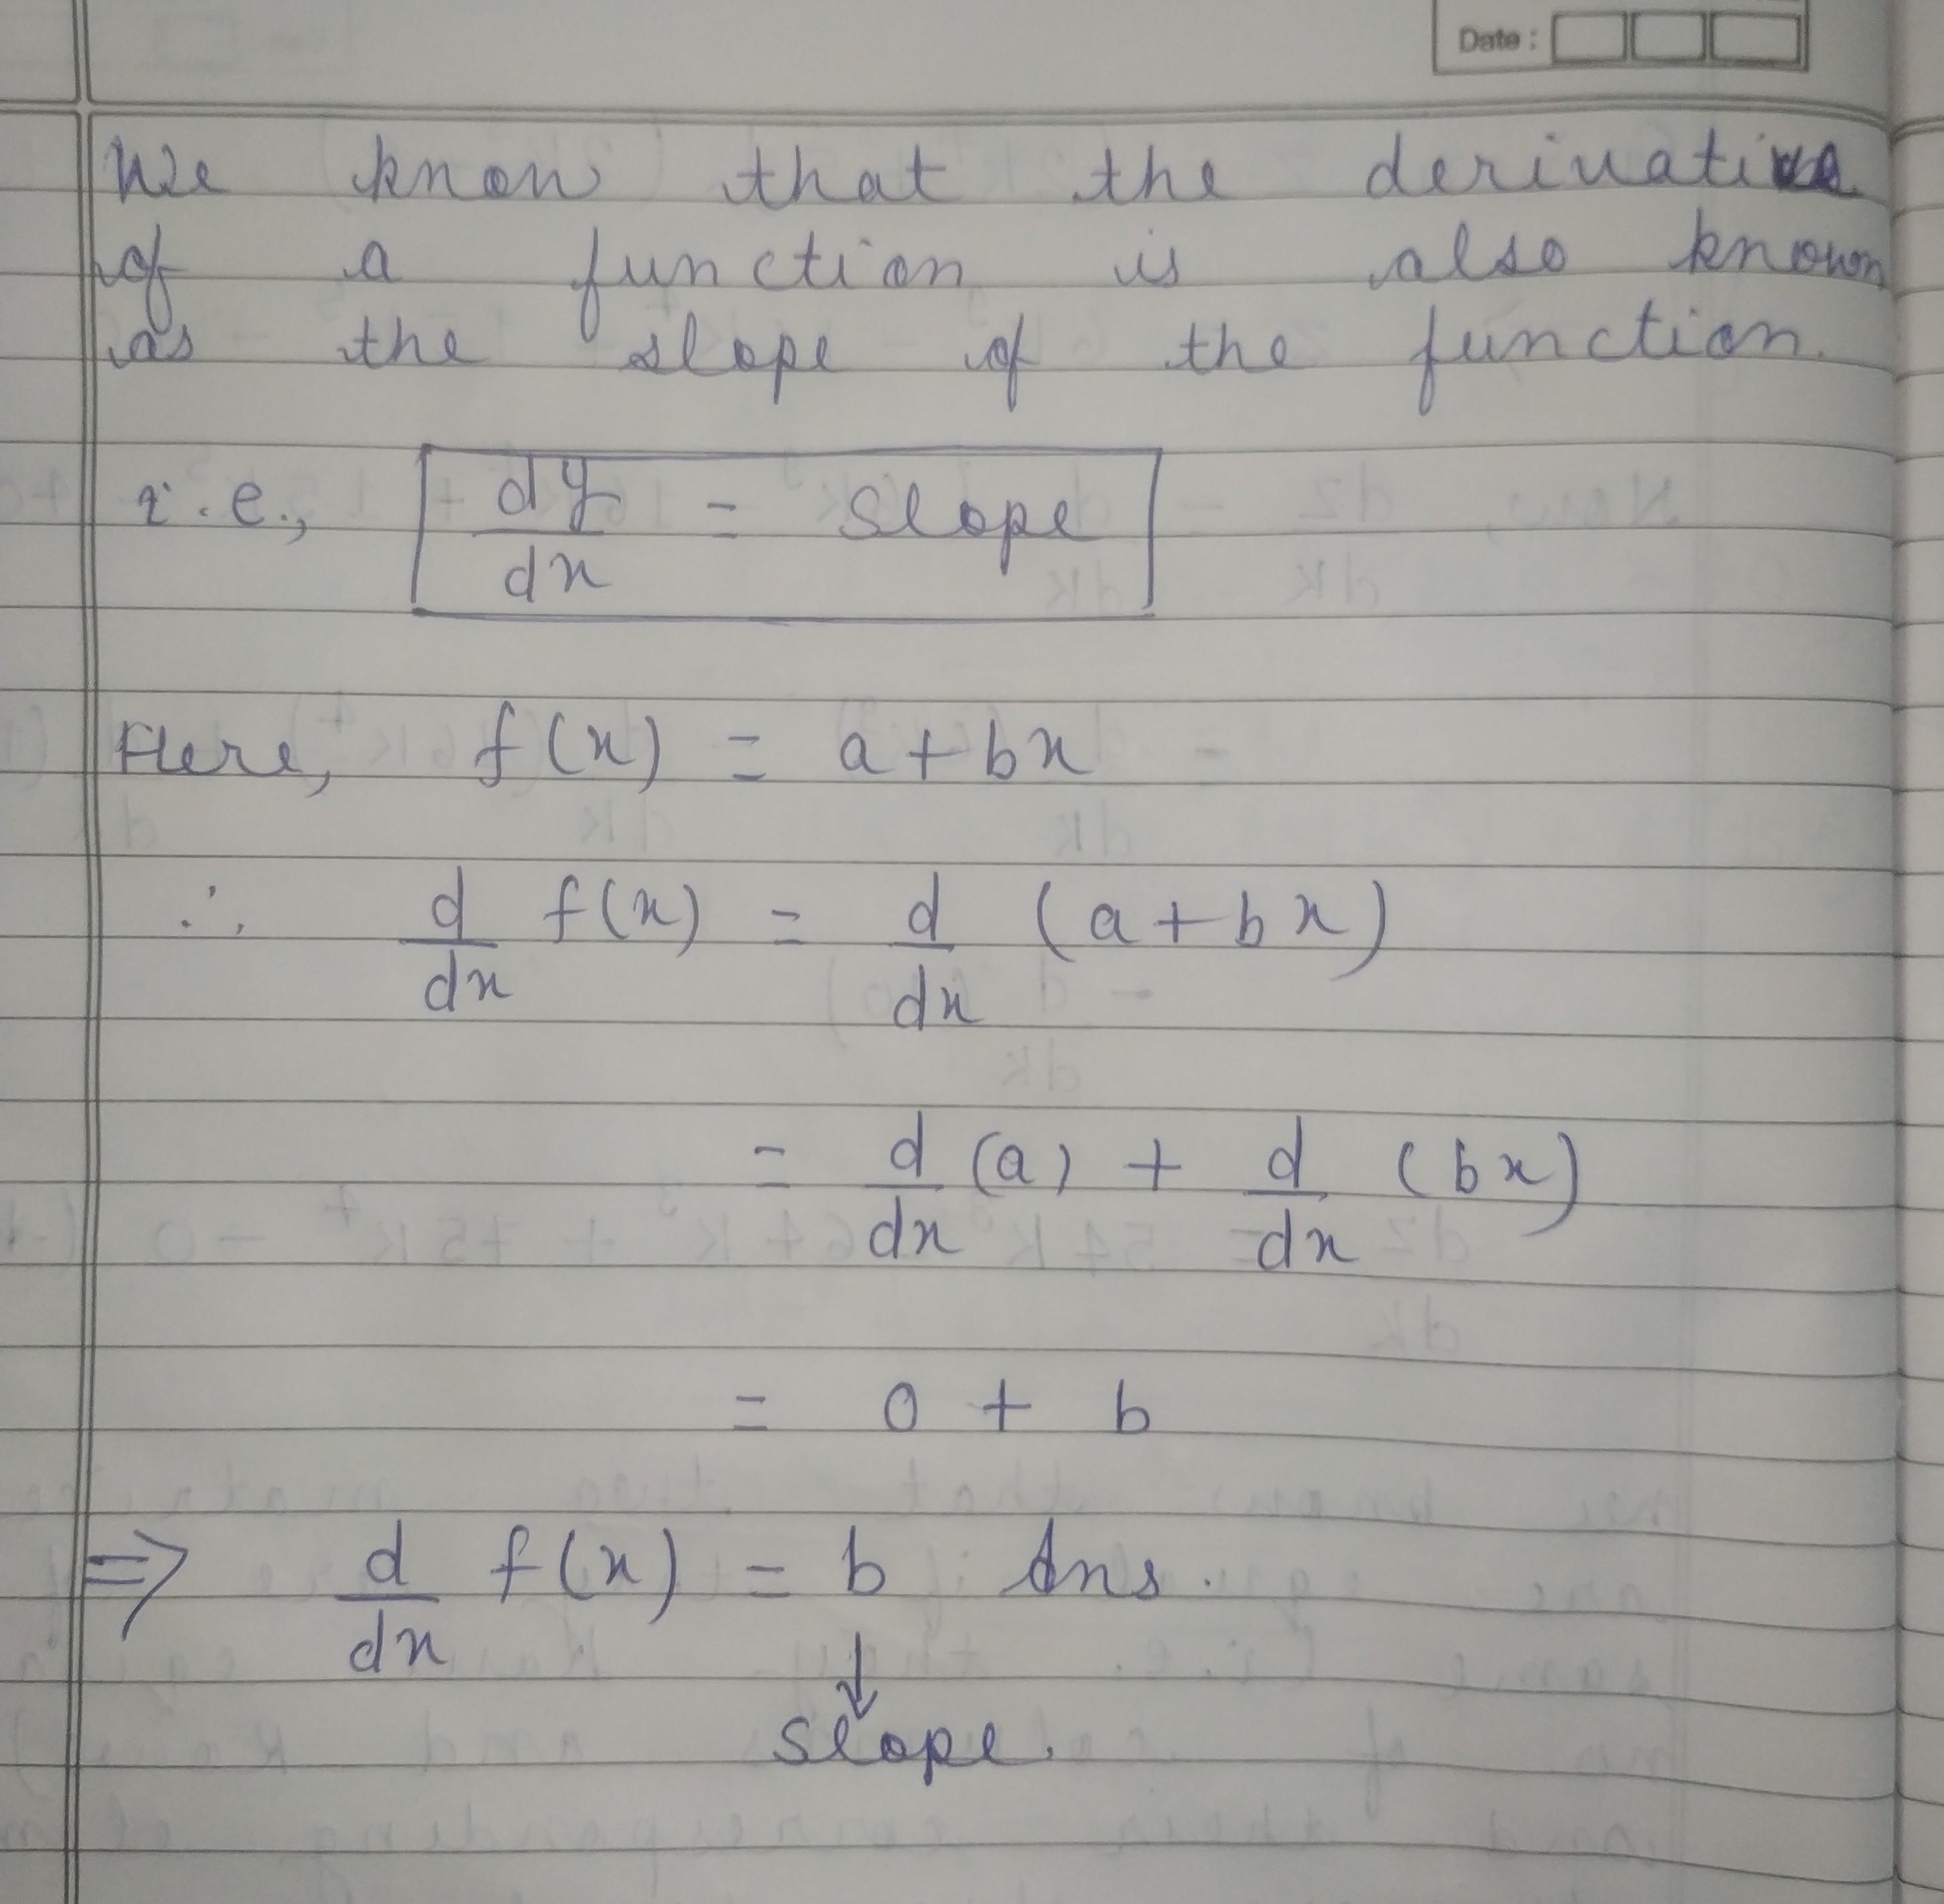 Date :
We know that the derivative
of a function is also known
as the slope of the function.
i.e., dy/dx = slope
Here, f(x) = a + bx
∴ d/dx f(x) = d/dx (a + bx)
= d/dx (a) + d/dx (bx)
= 0 + b
⇒ d/dx f(x) = b Ans.
↓
slope.